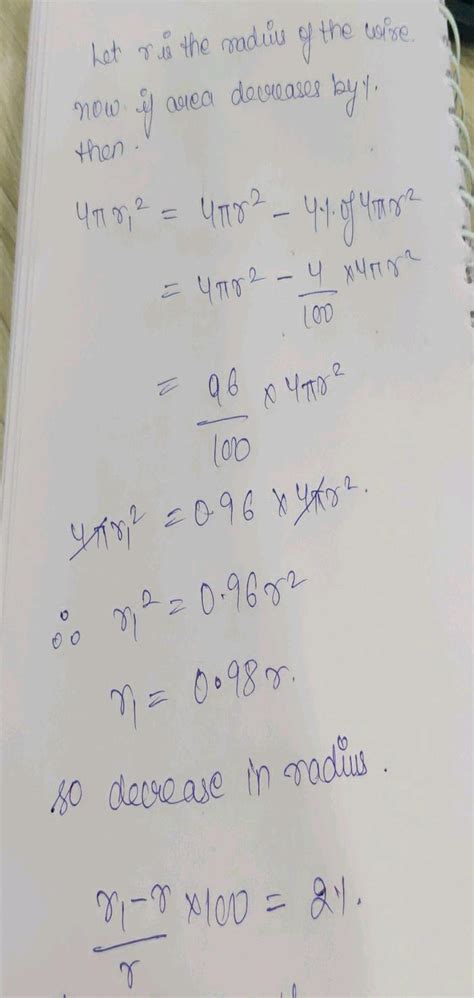 Let r is the radius of the wire.
now if area decreases by %.
then.
4πr₁² = 4πr² - 4% of 4πr²
= 4πr² - 4/100 × 4πr²
= 96/100 × 4πr²
4πr₁² = 0.96 × 4πr².
∴ r₁² = 0.96r²
r₁ = 0.98r.
so decrease in radius.
r₁-r/r ×100 = 2%.